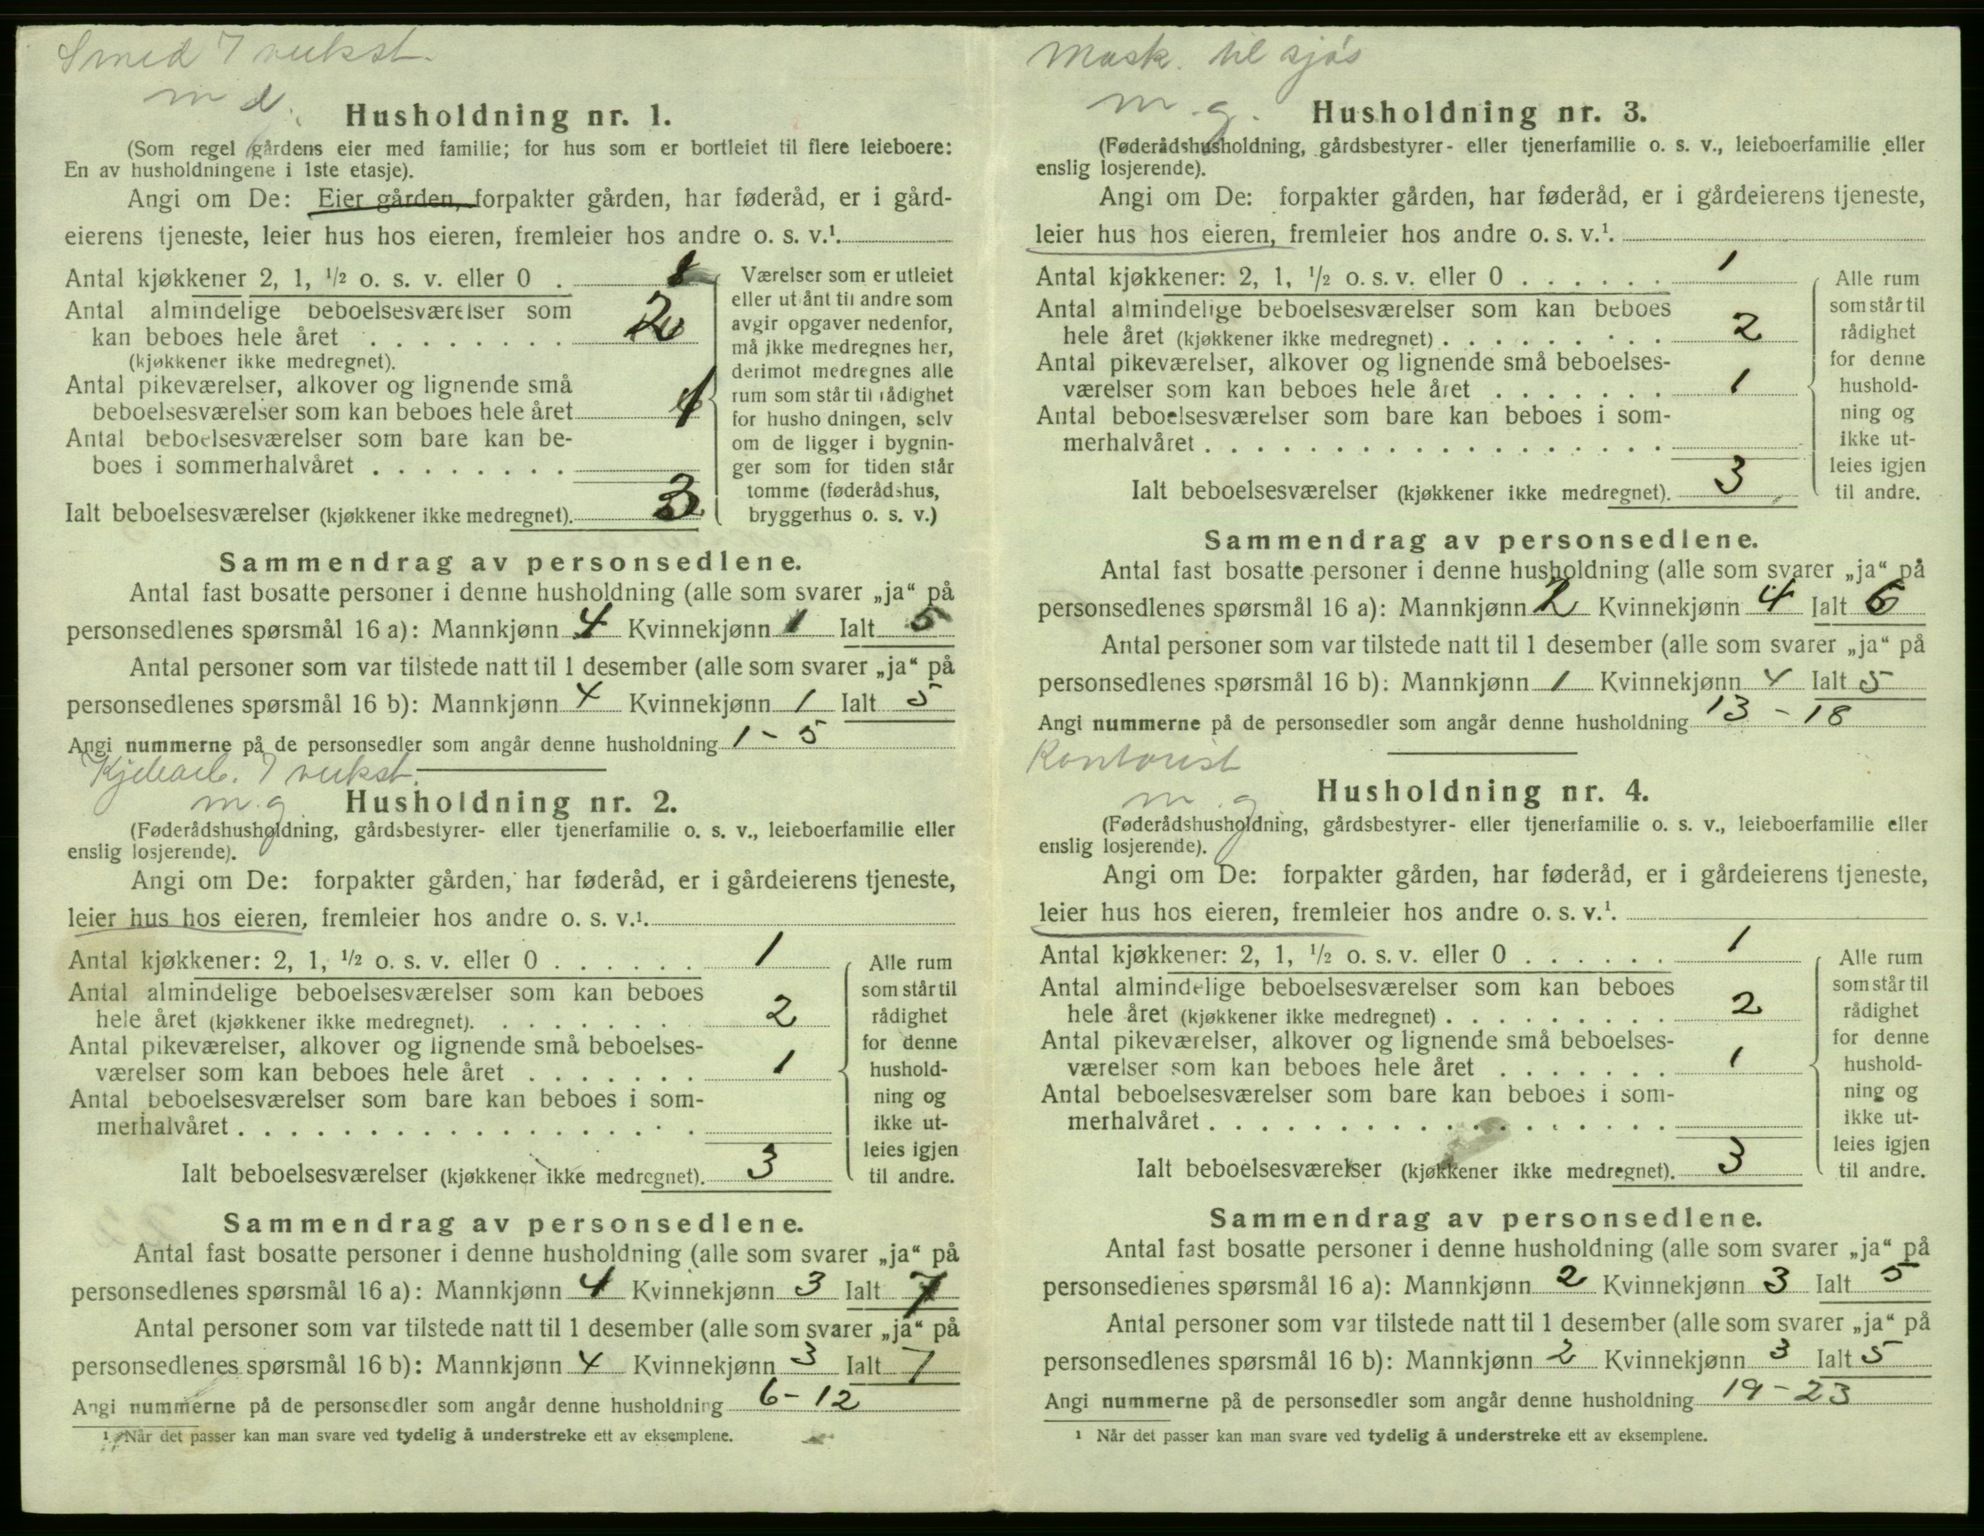 Smed ⁊ verkst.
m. g.
Husholdning nr. 1.
(Som regel gårdens eier med familie; for hus som er bortleiet til flere leieboere:
En av husholdningene i 1ste etasje).
Angi om De: Eier gården, forpakter gården, har føderåd, er i gård-
eierens tjeneste, leier hus hos eieren, fremleier hos andre o. s. v.¹.
Antal kjøkkener 2, 1, ½ o. s. v. eller 0 . 1
Antal almindelige beboelsesværelser som
kan beboes hele året . . . . . . . . 2
(kjøkkener ikke medregnet).
Antal pikeværelser, alkover og lignende små
beboelsesværelser som kan beboes hele året 1
Antal beboelsesværelser som bare kan be-
boes i sommerhalvåret . . . . . . . .
Ialt beboelsesværelser (kjøkkener ikke medregnet). 3
Værelser som er utleiet
eller utlånt til andre som
avgir opgaver nedenfor,
må ikke medregnes her,
derimot medregnes alle
rum som står til rådighet
for husholdningen, selv
om de ligger i bygnin-
ger som for tiden står
tomme (føderådshus,
bryggerhus o. s. v.)
Sammendrag av personsedlene.
Antal fast bosatte personer i denne husholdning (alle som svarer „ja“ på
personsedlenes spørsmål 16 a): Mannkjønn 4 Kvinnekjønn 1 Ialt 5
Antal personer som var tilstede natt til 1 desember (alle som svarer „ja“ på
personsedlenes spørsmål 16 b): Mannkjønn 4 Kvinnekjønn 1 Ialt 5
Angi nummerne på de personsedler som angår denne husholdning 1 - 5
⁊ verkst.
m. g.
Husholdning nr. 2.
(Føderådshusholdning, gårdsbestyrer- eller tjenerfamilie o. s. v., leieboerfamilie eller
enslig losjerende).
Angi om De: forpakter gården, har føderåd, er i gårdeierens tjeneste,
leier hus hos eieren, fremleier hos andre o. s. v.¹.
Antal kjøkkener: 2, 1, ½ o. s. v. eller 0 . . . . . . 1
Antal almindelige beboelsesværelser som kan beboes
hele året (kjøkkener ikke medregnet). . . . . . . . . 2
Antal pikeværelser, alkover og lignende små beboelses-
værelser som kan beboes hele året . . . . . . . 1
Antal beboelsesværelser som bare kan beboes i som-
merhalvåret . . . . . . . . . . . . . . . . . .
Ialt beboelsesværelser (kjøkkener ikke medregnet). 3
Alle rum
som står til
rådighet
for denne
hushold-
ning og
ikke ut-
leies igjen
til andre.
Sammendrag av personsedlene.
Antal fast bosatte personer i denne husholdning (alle som svarer „ja“ på
personsedlenes spørsmål 16 a): Mannkjønn 4 Kvinnekjønn 3 Ialt 7
Antal personer som var tilstede natt til 1 desember (alle som svarer „ja“ på
personsedlenes spørsmål 16 b): Mannkjønn 4 Kvinnekjønn 3 Ialt 7
Angi nummerne på de personsedler som angår denne husholdning 6 - 12
¹ Når det passer kan man svare ved tydelig å understreke ett av eksemplene.
Mask. til sjøs
m. g.
Husholdning nr. 3.
(Føderådshusholdning, gårdsbestyrer- eller tjenerfamilie o. s. v., leieboerfamilie eller
enslig losjerende).
Angi om De: forpakter gården, har føderåd, er i gårdeierens tjeneste,
leier hus hos eieren, fremleier hos andre o. s. v.¹.
Antal kjøkkener: 2, 1, ½ o. s. v. eller 0 . . . . . . 1
Antal almindelige beboelsesværelser som kan beboes
hele året (kjøkkener ikke medregnet) . . . . . . . . . 2
Antal pikeværelser, alkover og lignende små beboelses-
værelser som kan beboes hele året . . . . . . . 1
Antal beboelsesværelser som bare kan beboes i som-
merhalvåret . . . . . . . . . . . . . . . . . .
Ialt beboelsesværelser (kjøkkener ikke medregnet). 3
Alle rum
som står til
rådighet
for denne
hushold-
ning og
ikke ut-
leies igjen
til andre.
Sammendrag av personsedlene.
Antal fast bosatte personer i denne husholdning (alle som svarer „ja“ på
personsedlenes spørsmål 16 a): Mannkjønn 2 Kvinnekjønn 4 Ialt 6
Antal personer som var tilstede natt til 1 desember (alle som svarer „ja“ på
personsedlenes spørsmål 16 b): Mannkjønn 1 Kvinnekjønn 4 Ialt 5
Angi nummerne på de personsedler som angår denne husholdning 13 - 18
Kontorist
m. g.
Husholdning nr. 4.
(Føderådshusholdning, gårdsbestyrer- eller tjenerfamilie o. s. v., leieboerfamilie eller
enslig losjerende).
Angi om De: forpakter gården, har føderåd, er i gårdeierens tjeneste,
leier hus hos eieren, fremleier hos andre o. s. v.¹.
Antal kjøkkener: 2, 1, ½ o. s. v. eller 0 . . . . . . 1
Antal almindelige beboelsesværelser som kan beboes
hele året (kjøkkener ikke medregnet) . . . . . . . . . 2
Antal pikeværelser, alkover og lignende små beboelses-
værelser som kan beboes hele året . . . . . . . 1
Antal beboelsesværelser som bare kan beboes i som-
merhalvåret . . . . . . . . . . . . . . . . . .
Ialt beboelsesværelser (kjøkkener ikke medregnet). 3
Alle rum
som står til
rådighet
for denne
hushold-
ning og
ikke ut-
leies igjen
til andre.
Sammendrag av personsedlene.
Antal fast bosatte personer i denne husholdning (alle som svarer „ja“ på
personsedlenes spørsmål 16 a): Mannkjønn 2 Kvinnekjønn 3 Ialt 5
Antal personer som var tilstede natt til 1 desember (alle som svarer „ja“ på
personsedlenes spørsmål 16 b): Mannkjønn 2 Kvinnekjønn 3 Ialt 5
Angi nummerne på de personsedler som angår denne husholdning 19 - 23
¹ Når det passer kan man svare ved tydelig å understreke ett av eksemplene.